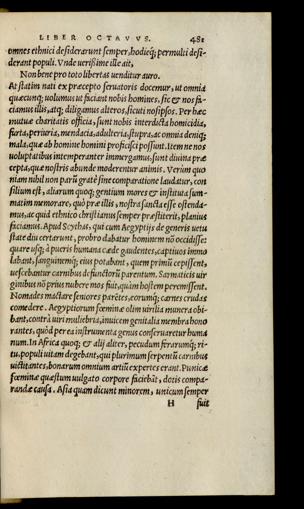 LIBER OCTAVVS. 481
omnes ethnici desiderarunt semper, hodieq; permulti desi-
derant populi. Vnde verißime ille ait,
Non bene pro toto libertas uenditur auro.
At statim nati ex præcepto seruatoris docemur, ut omnia
quæcunq; uolumus ut faciant nobis homines, sic & nos fa-
ciamus illis, atq; diligamus alteros, sicuti nosipsos. Per hæc
mutuæ charitatis officia, sunt nobis interdicta homicidia,
furta, periuria, mendacia, adulteria, stupra, ac omnia deniq;
mala, quæ ab homine homini proficisci possunt. Item ne nos
uoluptatibus intemperanter immergamus, sunt diuina præ
cepta, quæ nostris abunde moderentur animis. Verum quo
niam nihil non parū gratē sine comparatione laudatur, con
silium est, aliarum quoq; gentium mores & instituta sum-
matim memorare, quò præ illis, nostra sancta esse ostenda-
mus, ac quid ethnico christianus semper præstiterit, planius
faciamus. Apud Scythas, qui cum Aegyptijs de generis uetu
state diu certarunt, probro dabatur hominem nō occidisse:
quare usq; à pueris humana cæde gaudentes, captiuos immo
labant, sanguinemq; eius potabant, quem primū cepissent,
uescebantur carnibus defunctorū parentum. Sarmaticis uir
ginibus nō prius nubere mos fuit, quàm hostem peremissent.
Nomades mactare seniores parētes, eorumq; carnes crudas
comedere. Aegyptiorum fœminæ olim uirilia munera obi-
bant, contrà uiri muliebria, inuicem genitalia membra hono
rantes, quòd per ea instrumenta genus conseruaretur huma
num. In Africa quoq; & alij aliter, pecudum ferarumq; ri-
tu, populi uitam degebant, qui plurimum serpentū carnibus
uictitantes, bonarum omnium artiū expertes erant. Punicæ
fœminæ quæstum uulgato corpore faciebāt, dotis compa-
randæ causa. Asia quam dicunt minorem, unicum semper
H fuit